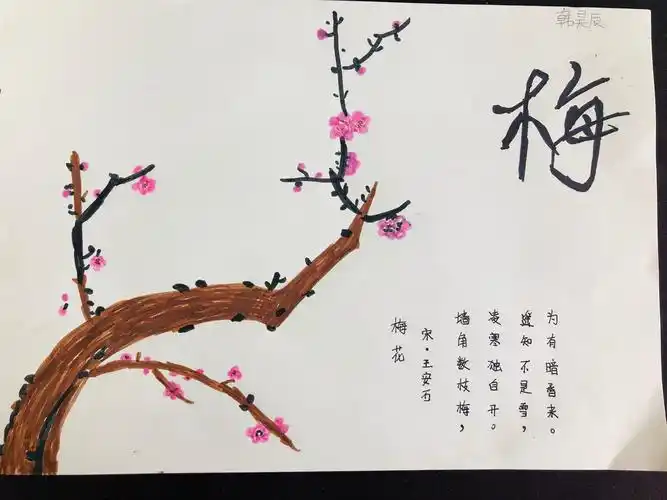 韩昊辰
梅
梅花
宋·王安石
墙角数枝梅，
凌寒独自开。
遥知不是雪，
为有暗香来。